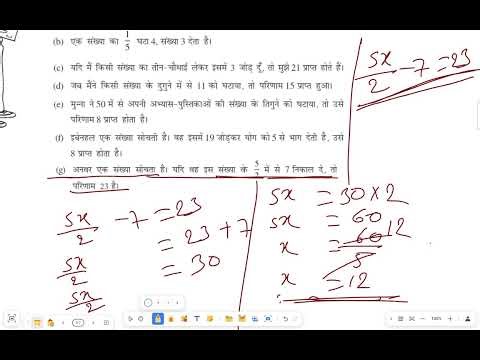 (b) एक संख्या का 1/5 घटा 4, संख्या 3 देता है।
(c) यदि मैं किसी संख्या का तीन-चौथाई लेकर इसमें 3 जोड़ दूँ, तो मुझे 21 प्राप्त होते हैं।
(d) जब मैंने किसी संख्या के दुगुने में से 11 को घटाया, तो परिणाम 15 प्राप्त हुआ।
(e) मुन्ना ने 50 में से अपनी अभ्यास-पुस्तिकाओं की संख्या के तिगुने को घटाया, तो उसे
परिणाम 8 प्राप्त होता है।
(f) इबेनहल एक संख्या सोचती है। वह इसमें 19 जोड़कर योग को 5 से भाग देती है, उसे
8 प्राप्त होता है।
(g) अनवर एक संख्या सोचता है। यदि वह इस संख्या के 5/2 में से 7 निकाल दे, तो
परिणाम 23 है।
5x/2 - 7 = 23
5x/2 - 7 = 23
5x/2 = 23 + 7
5x/2 = 30
5x = 30 × 2
5x = 60
x = 60/5 12
x = 12